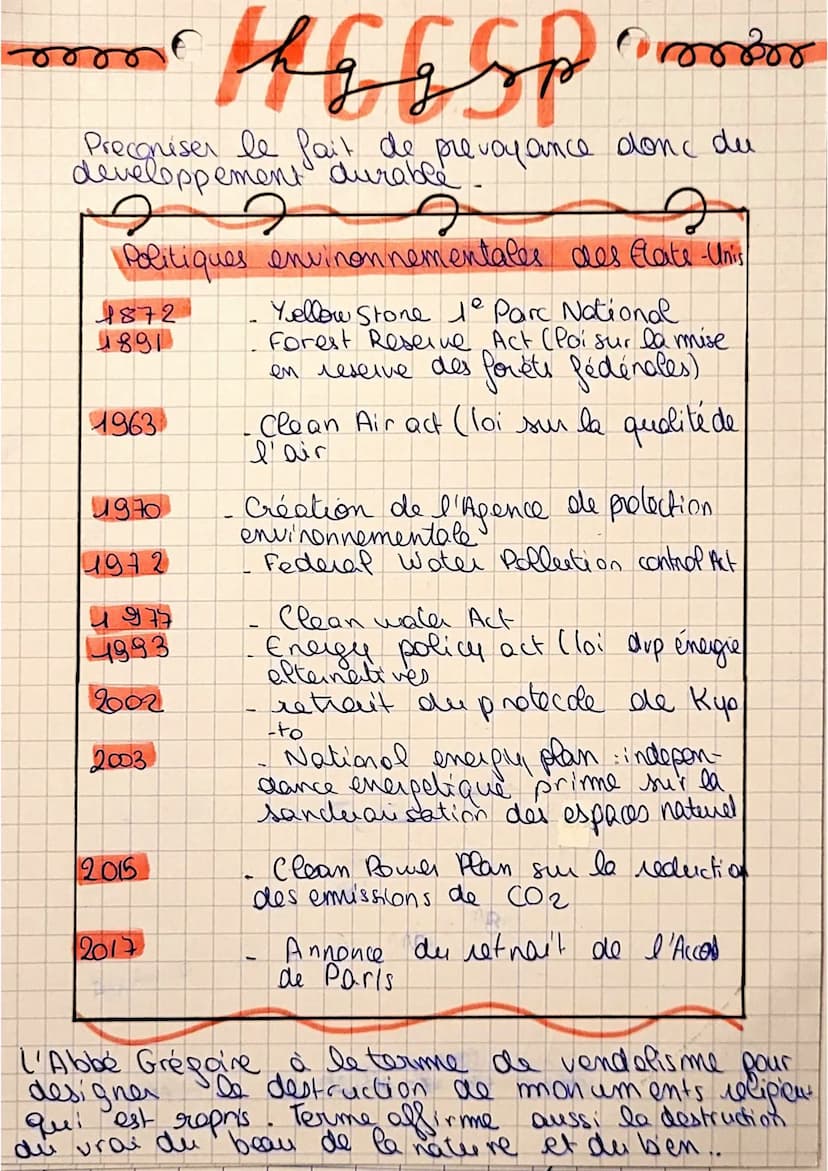 HGGSP
hggsp
Preconiser le fait de prevoyance donc du
developpement durable.
Politiques environnementales des États-Unis
1872 - Yellow Stone 1e Parc National
1891 - Forest Reserve Act (loi sur la mise
en reserve des forêts fédérales)
1963 - Clean Air act (loi sur la qualité de
l'air
1970 - Création de l'Agence de protection
environnementale
1972 - Federal Water Pollution control Act
1977 - Clean water Act
1993 - Energy policy act (loi dvp énergie
alternatives
2002 - retrait du protocole de Kyo
-to
2003 - National energy plan : indepen-
dance energetique prime sur la
sanctuarisation des espaces naturel
2015 - Clean Power Plan sur la reduction
des emissions de CO2
2017 - Annonce du retrait de l'Accod
de Paris
L'Abbé Grégoire à le terme de vandalisme pour
designer la destruction de monuments religieux
qui est repris. Terme affirme aussi la destruction
du vrai du beau de la nature et du bien..